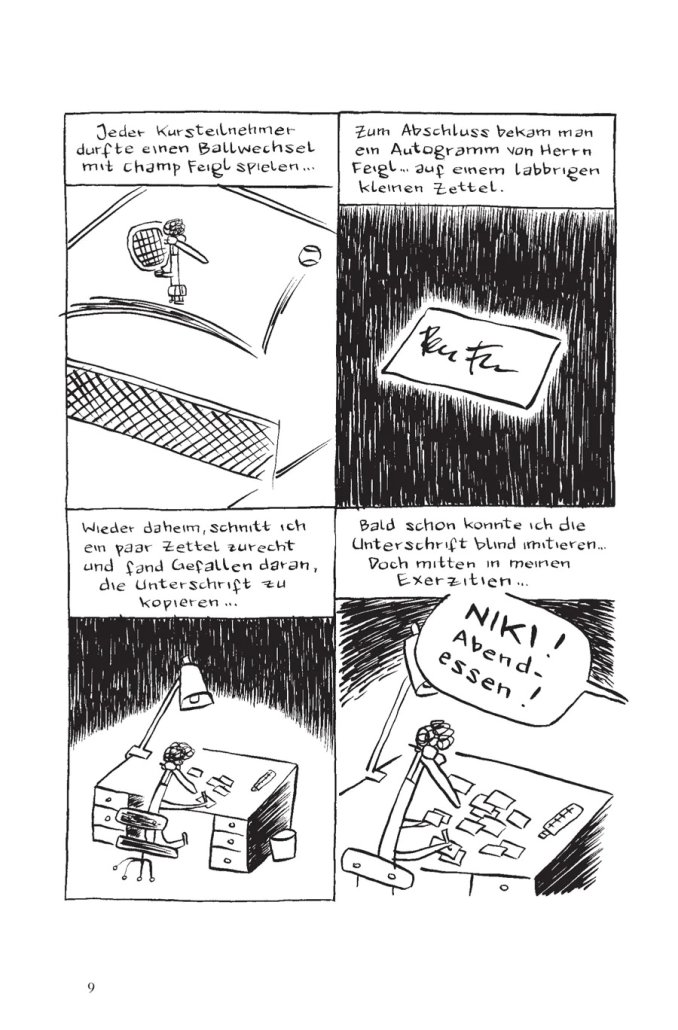 Jeder Kursteilnehmer
durfte einen Ballwechsel
mit Champ Feigl spielen...
Zum Abschluss bekam man
ein Autogramm von Herrn
Feigl... auf einem labbrigen
kleinen Zettel.
Wieder daheim, schnitt ich
ein paar Zettel zurecht
und fand Gefallen daran,
die Unterschrift zu
kopieren...
Bald schon konnte ich die
Unterschrift blind imitieren...
Doch mitten in meinen
Exerzitien...
NIKI!
Abend-
essen!
9